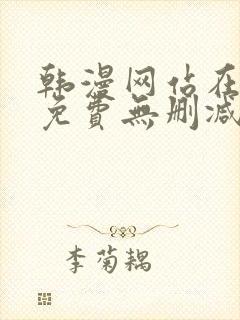 韩漫网站在
免費無删减
李菊耦